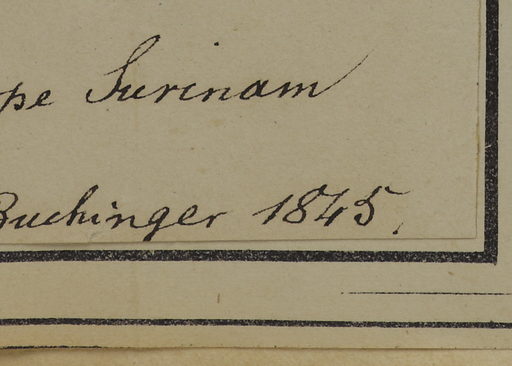 pe Surinam
Buchinger 1845.